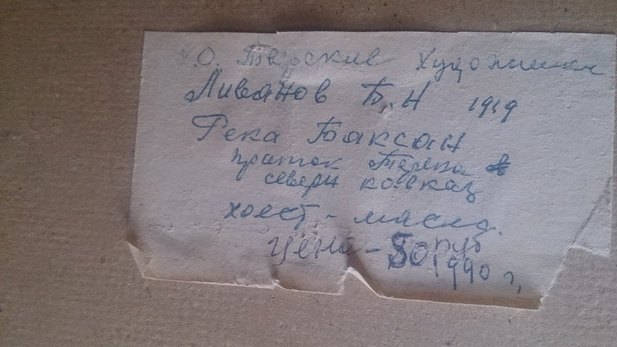 О. Тверские художники
Ливанов Б. Н 1919
Река Баксан
приток Терека
северн ковказ
холст - масло.
цена - 50 руб
1990 г,